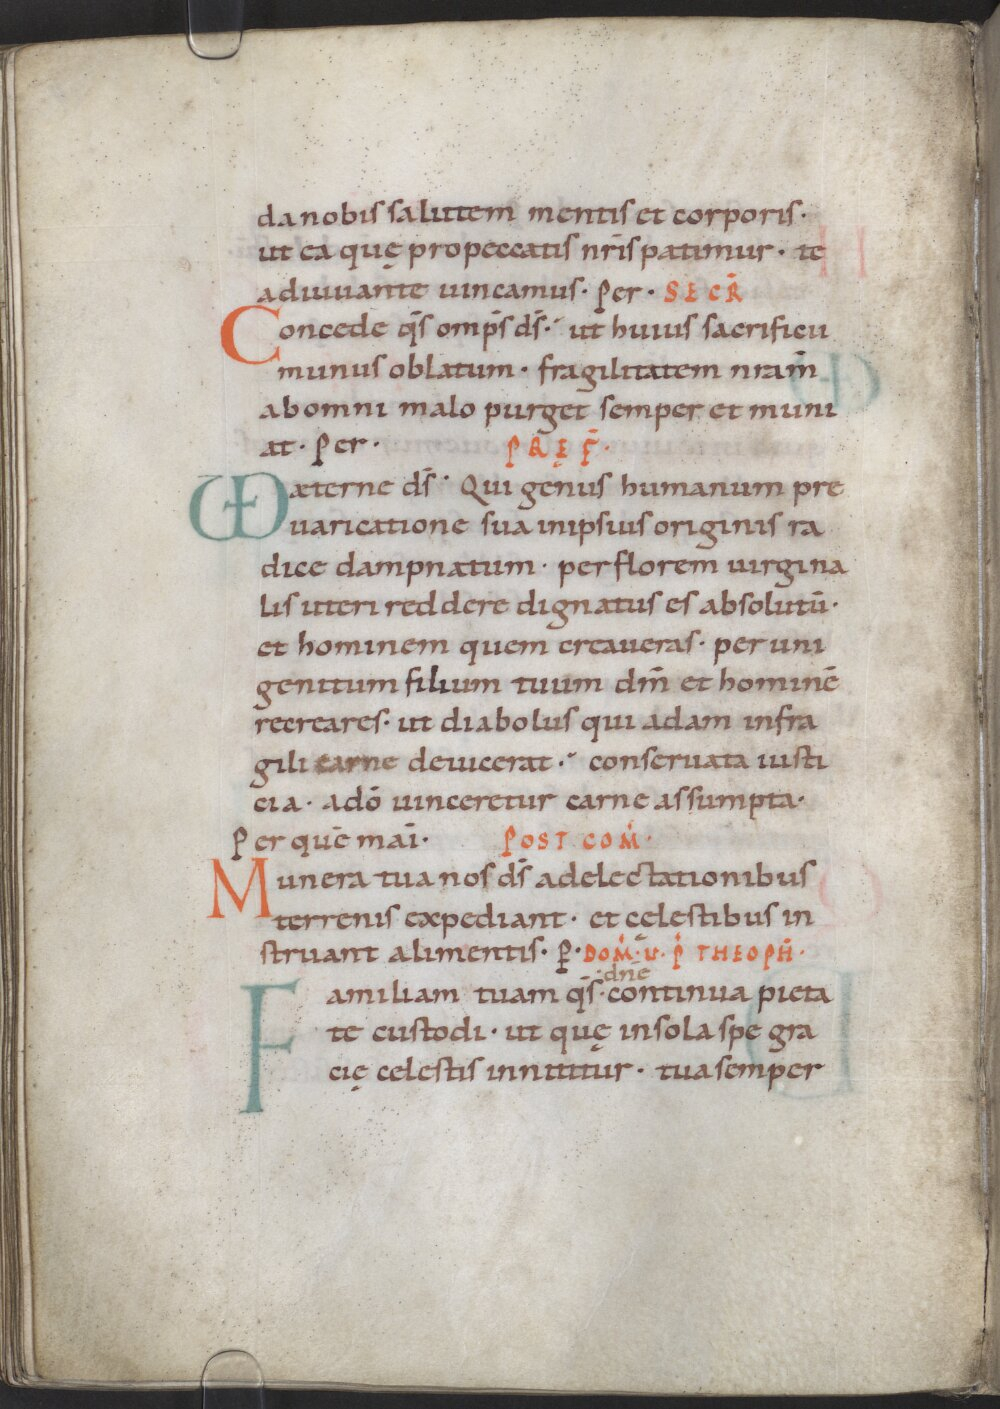 da nobis salutem mentis et corporis·
ut ea quę pro peccatis nr̄is patimur· te
adiuuante uincamus· Per· SECR̄
Concede q̄s omp̄s d̄s· ut huius sacrificii
munus oblatum· fragilitatem nram̄
ab omni malo purget semper et muni
at· Per· PRĘF̄·
VD æterne d̄s· Qui genus humanum pre
uaricatione sua in ipsius originis ra
dice dampnatum· per florem uirgina
lis uteri reddere dignatus es absolutū·
et hominem quem creaueras· per uni
genitum filium tuum dm̄ et hominē
recreares· ut diabolus qui adam in fra
gili carne deuicerat· conseruata iusti
cia· a dō uinceretur carne assumpta·
Per quē mai̅· POST COM̄·
Munera tua nos d̄s a delectationibus
terrenis expediant· et cęlestibus in
struant alimentis· P̲· DOM̄· V· P̄ THEOPH̄·
dn̄e
Familiam tuam q̄s· continua pieta
te custodi· ut quę in sola spe gra
cię celestis innititur· tua semper